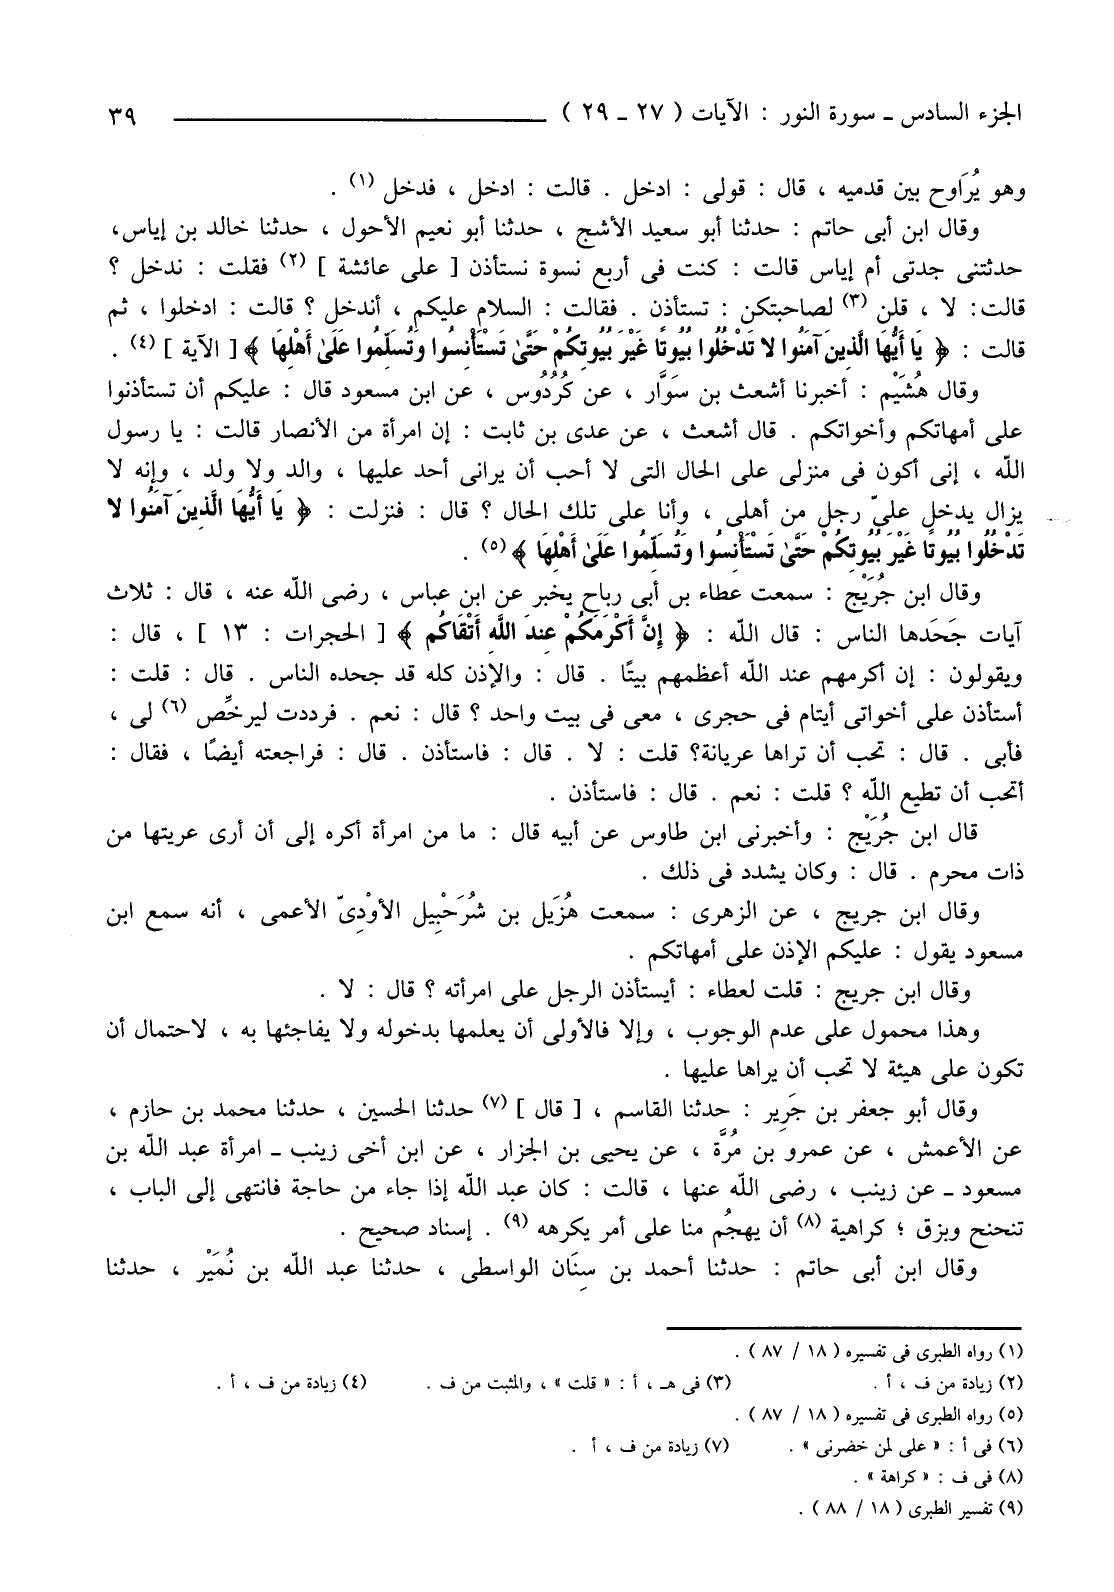 الجزء السادس ـ سورة النور : الآيات ( ٢٧ ـ ٢٩ ) ٣٩
وهو يُرَاوح بين قدميه ، قال : قولى : ادخل . قالت : ادخل ، فدخل (١) .
وقال ابن أبى حاتم : حدثنا أبو سعيد الأشج ، حدثنا أبو نعيم الأحول ، حدثنا خالد بن إياس،
حدثتنى جدتى أم إياس قالت : كنت فى أربع نسوة نستأذن [ على عائشة ] (٢) فقلت : ندخل ؟
قالت: لا ، قلن (٣) لصاحبتكن : تستأذن . فقالت : السلام عليكم ، أندخل ؟ قالت : ادخلوا ، ثم
قالت : ﴿ يَا أَيُّهَا الَّذِينَ آمَنُوا لا تَدْخُلُوا بُيُوتًا غَيْرَ بُيُوتِكُمْ حَتَّىٰ تَسْتَأْنِسُوا وَتُسَلِّمُوا عَلَىٰ أَهْلِهَا ﴾ [ الآية ] (٤) .
وقال هُشَيْم : أخبرنا أشعث بن سَوَّار ، عن كُرْدُوس ، عن ابن مسعود قال : عليكم أن تستأذنوا
على أمهاتكم وأخواتكم . قال أشعث ، عن عدى بن ثابت : إن امرأة من الأنصار قالت : يا رسول
الله ، إنى أكون فى منزلى على الحال التى لا أحب أن يرانى أحد عليها ، والد ولا ولد ، وإنه لا
يزال يدخل علىّ رجل من أهلى ، وأنا على تلك الحال ؟ قال : فنزلت : ﴿ يَا أَيُّهَا الَّذِينَ آمَنُوا لا
تَدْخُلُوا بُيُوتًا غَيْرَ بُيُوتِكُمْ حَتَّىٰ تَسْتَأْنِسُوا وَتُسَلِّمُوا عَلَىٰ أَهْلِهَا ﴾ (٥) .
وقال ابن جُرَيْج : سمعت عطاء بن أبى رباح يخبر عن ابن عباس ، رضى الله عنه ، قال : ثلاث
آيات جَحَدها الناس : قال الله : ﴿ إِنَّ أَكْرَمَكُمْ عِندَ اللَّهِ أَتْقَاكُم ﴾ [ الحجرات : ١٣ ] ، قال :
ويقولون : إن أكرمهم عند الله أعظمهم بيتًا . قال : والإذن كله قد جحده الناس . قال : قلت :
أستأذن على أخواتى أيتام فى حجرى ، معى فى بيت واحد ؟ قال : نعم . فرددت ليرخِّص (٦) لى ،
فأبى . قال : تحب أن تراها عريانة؟ قلت : لا . قال : فاستأذن . قال : فراجعته أيضًا ، فقال :
أتحب أن تطيع الله ؟ قلت : نعم . قال : فاستأذن .
قال ابن جُرَيْج : وأخبرنى ابن طاوس عن أبيه قال : ما من امرأة أكره إلى أن أرى عريتها من
ذات محرم . قال : وكان يشدد فى ذلك .
وقال ابن جريج ، عن الزهرى : سمعت هُزَيل بن شُرَحْبِيل الأوْدِىّ الأعمى ، أنه سمع ابن
مسعود يقول : عليكم الإذن على أمهاتكم .
وقال ابن جريج : قلت لعطاء : أيستأذن الرجل على امرأته ؟ قال : لا .
وهذا محمول على عدم الوجوب ، وإلا فالأولى أن يعلمها بدخوله ولا يفاجئها به ، لاحتمال أن
تكون على هيئة لا تحب أن يراها عليها .
وقال أبو جعفر بن جَرِير : حدثنا القاسم ، [ قال ] (٧) حدثنا الحسين ، حدثنا محمد بن حازم ،
عن الأعمش ، عن عمرو بن مُرَّة ، عن يحيى بن الجزار ، عن ابن أخى زينب ـ امرأة عبد الله بن
مسعود ـ عن زينب ، رضى الله عنها ، قالت : كان عبد الله إذا جاء من حاجة فانتهى إلى الباب ،
تنحنح وبزق ؛ كراهية (٨) أن يهجُم منا على أمر يكرهه (٩) . إسناد صحيح .
وقال ابن أبى حاتم : حدثنا أحمد بن سِنَان الواسطى ، حدثنا عبد الله بن نُمَيْر ، حدثنا
(١) رواه الطبرى فى تفسيره ( ١٨ / ٨٧ ) .
(٢) زيادة من ف ، أ . (٣) فى هـ ، أ : « قلت » ، والمثبت من ف . (٤) زيادة من ف ، أ .
(٥) رواه الطبرى فى تفسيره ( ١٨ / ٨٧ ) .
(٦) فى أ : « على لمن خضرنى » . (٧) زيادة من ف ، أ .
(٨) فى ف : « كراهة » .
(٩) تفسير الطبرى ( ١٨ / ٨٨ ) .